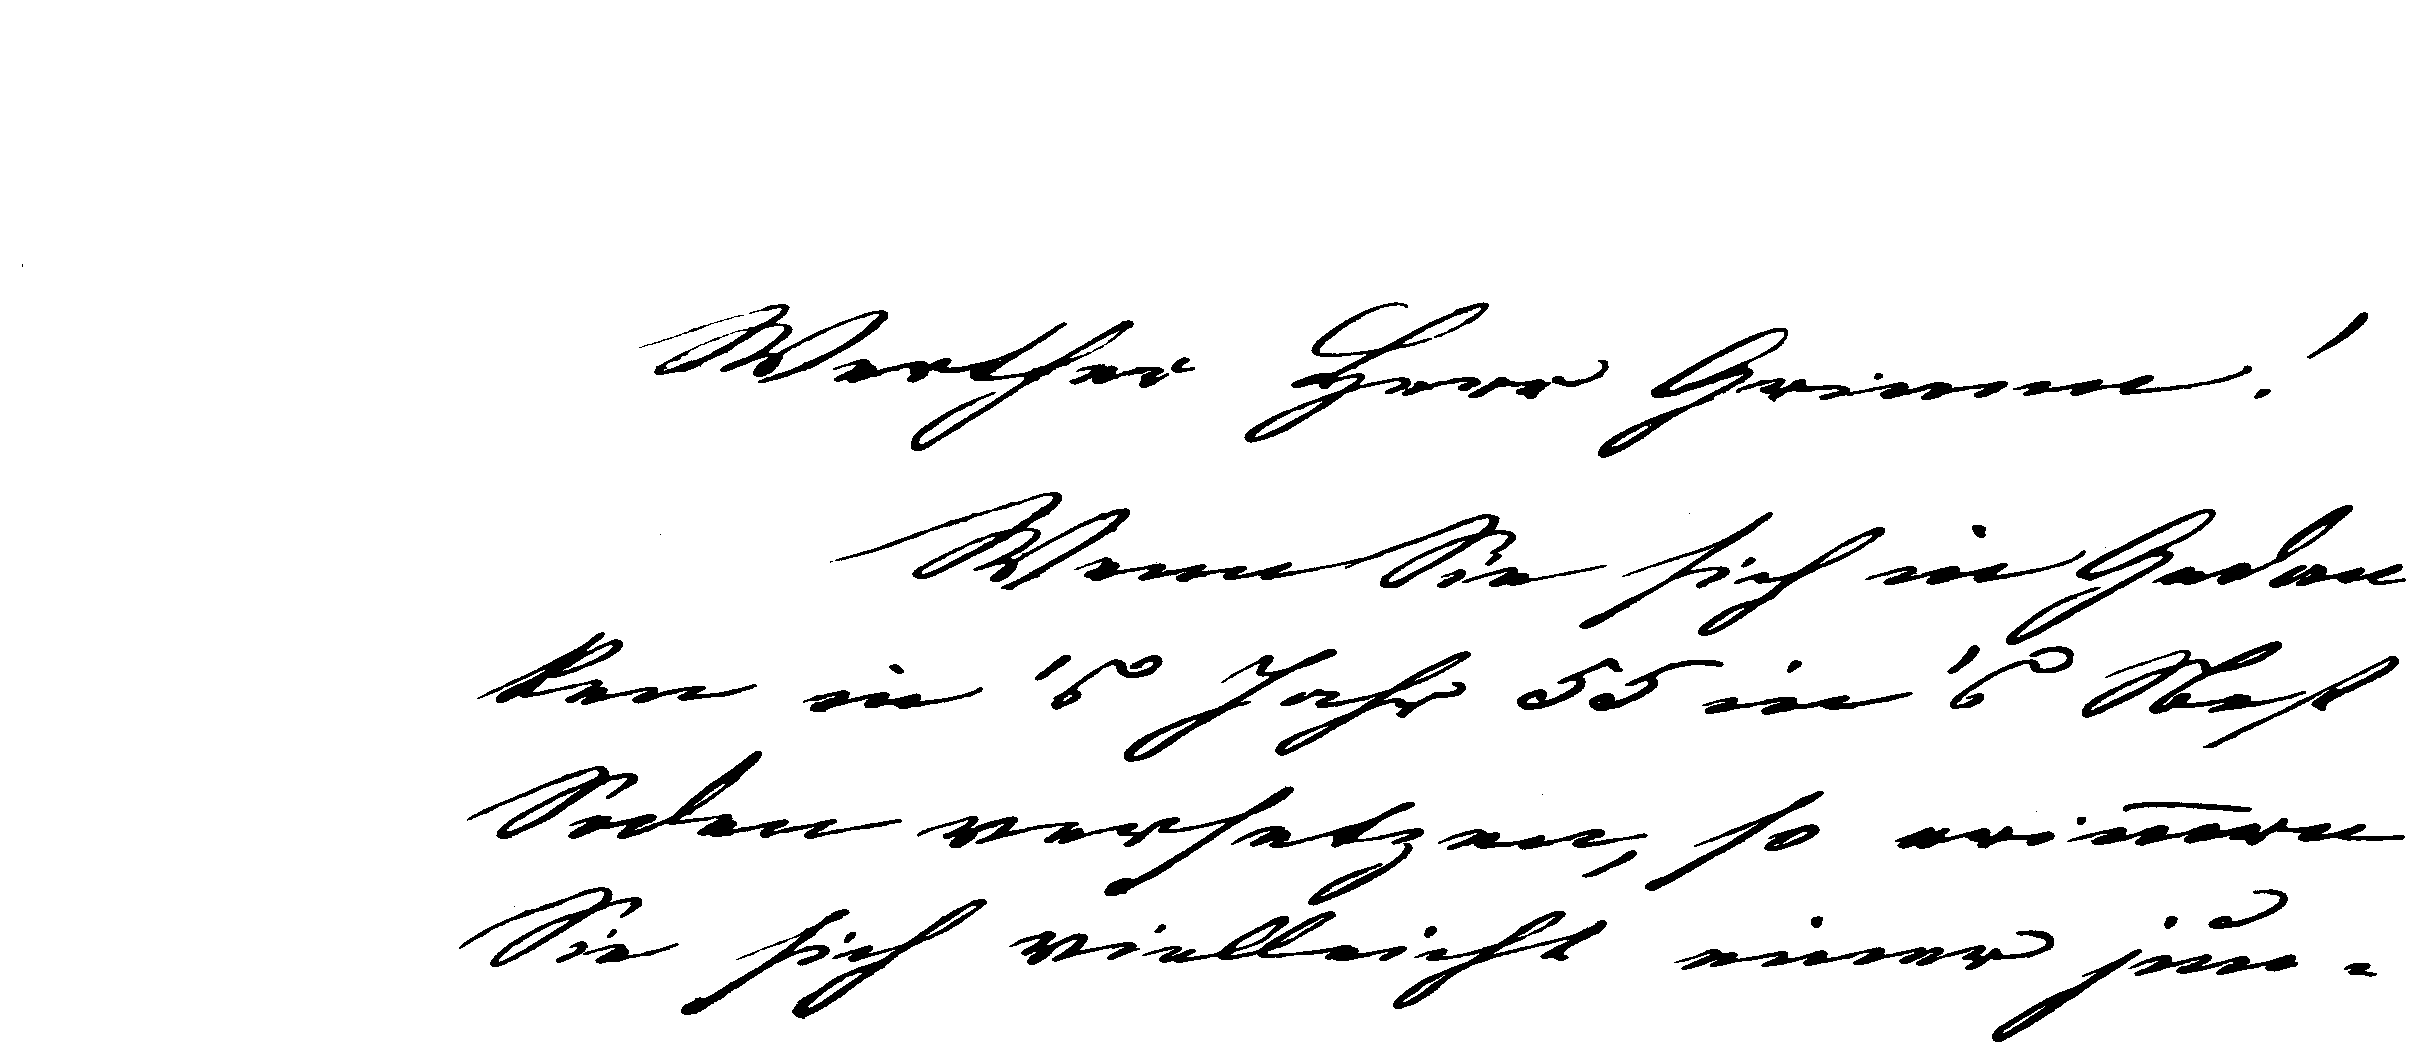 Werther Herr Grimm!
Wenn Sie sich in Gedan
ken in's Jahr 55 in's Bad
Soden versetzen, so erin̄ern
Sie sich vielleicht einer jun=